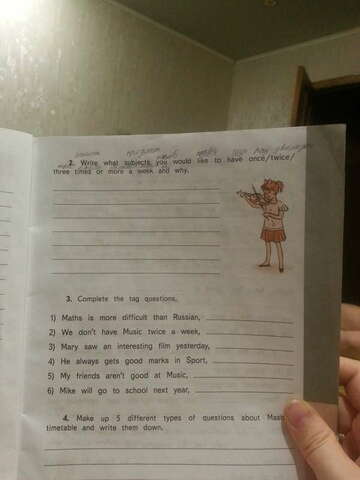 2. Write what subjects you would like to have once/twice/
three times or more a week and why.
3. Complete the tag questions.
1) Maths is more difficult than Russian,
2) We don't have Music twice a week,
3) Mary saw an interesting film yesterday,
4) He always gets good marks in Sport,
5) My friends aren't good at Music,
6) Mike will go to school next year,
4. Make up 5 different types of questions about
timetable and write them down.